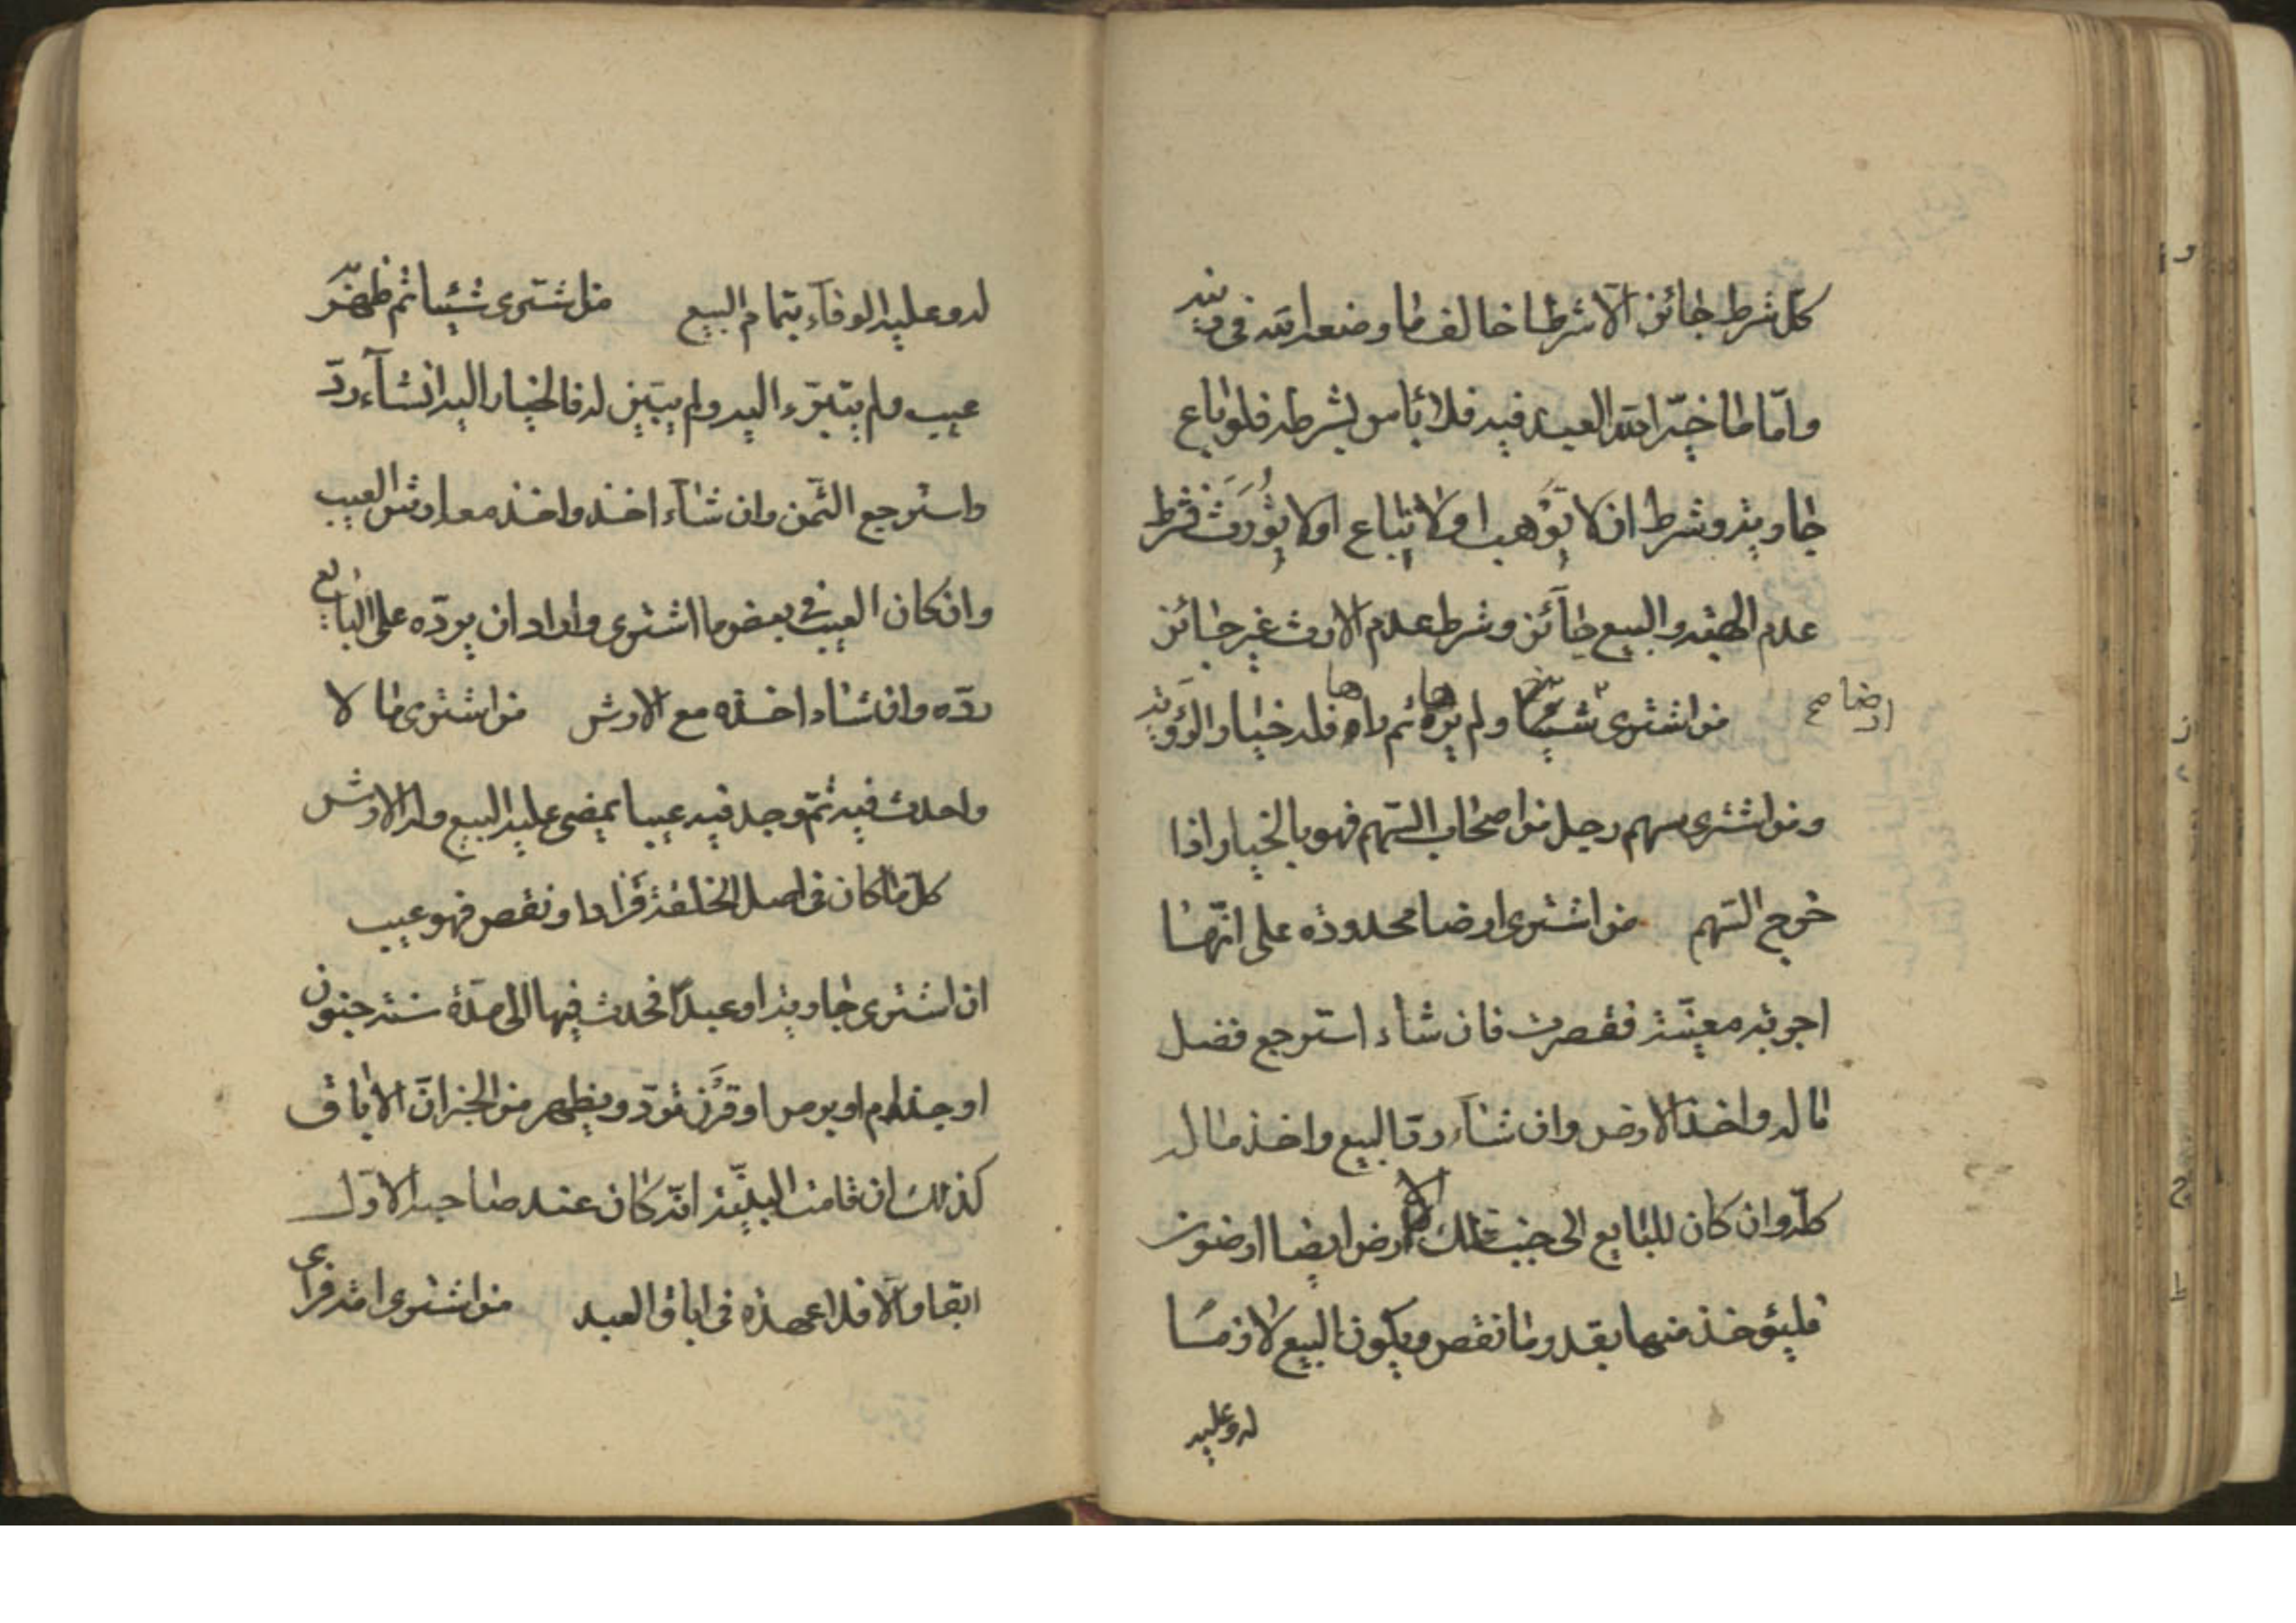 كلّ شرط جائز الّا شرطا خالف ما وضعه الله فى دينه
وامّا ما خيّر الله العبد فيه فلا باس بشرطه فلو باع
جارية وشرط ان لا توهب او لا تباع او لا تورث فشرط
عدم الهبة والبيع جآئز وشرط عدم الارث غير جائز
من اشترى شيئا ولم يره ثم راه فله خيار الرؤية
ارضا صح
ها ها
ومن اشترى سهم رجل من اصحاب السّهم فهو بالخيار اذا
خرج السّهم من اشترى ارضا محدوده على انّها
اجربة معيّنة فنقصت فان شاء استرجع فضل
ماله واخذ الارض وان شآء ردّ البيع واخذ ماله
كلّه وان كان للبايع الى جنب تلك الارض ايضا ارضون
فليؤخذ منها بقدر ما نقص ويكون البيع لازما
له وعليه
له وعليه الوفآء بتمام البيع من اشترى شيئا ثم ظهر
عيب ولم يتبرّء اليه ولم يبيّن له فالخيار اليه ان شآء ردّ
واسترجع الثّمن وان شآء اخذ واخذ معه ارش العيب
وان كان العيب فى بعض ما اشترى واراد ان يردّه على البايع
ردّه وان شاء اخذه مع الارش من اشترى ما لا
واحدث فيه ثمّ وجد فيه عيبا يمضى عليه البيع وله الارش
كلّ ما كان فى اصل الخلقة فزاد او نقص فهو عيب
ان اشترى جارية او عبدًا فحدث فيها الى مدّة سنة جنون
او جذام او برص او قرن تردّ ويظهر من الخبر انّ الاباق
كذلك ان قامت البيّنة انّه كان عند صاحبه الاوّل
ابقا والّا فلا عهدة فى اباق العبد من اشترى امة فراى